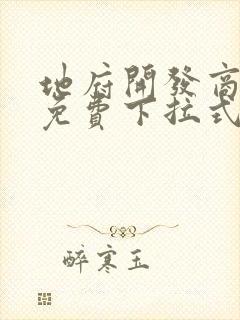 地府開發商
免費下拉式
醉寒玉